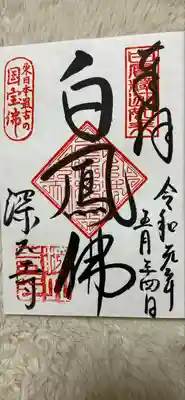 奉拝
令和元年
五月二四日
白鳳佛
東日本最古の
国宝佛
深大寺